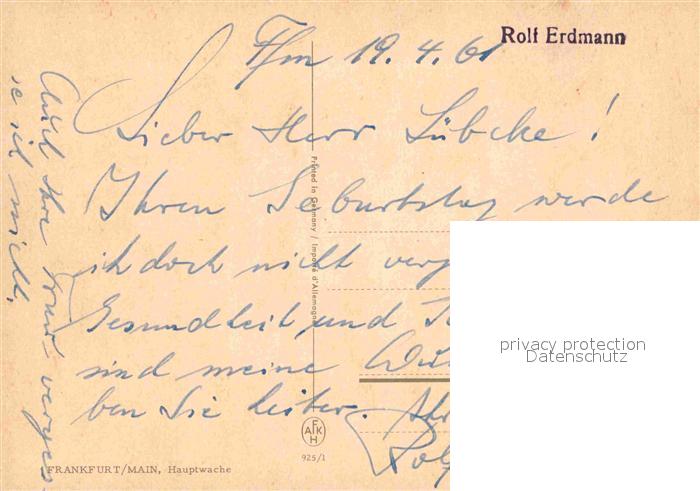 Rolf Erdmann
Ffm 19.4.61
Lieber Herr Lübcke!
Ihren Geburtstag werde
ich doch nicht verg
Gesundheit und
sind meine Wü
ben Sie heiter. Ihr
Rolf
Auch Ihre Frau verges
se ich nicht.
Printed in Germany / Imporé d'Allemagne
privacy protection
Datenschutz
AFKH
925/1
FRANKFURT/MAIN, Hauptwache